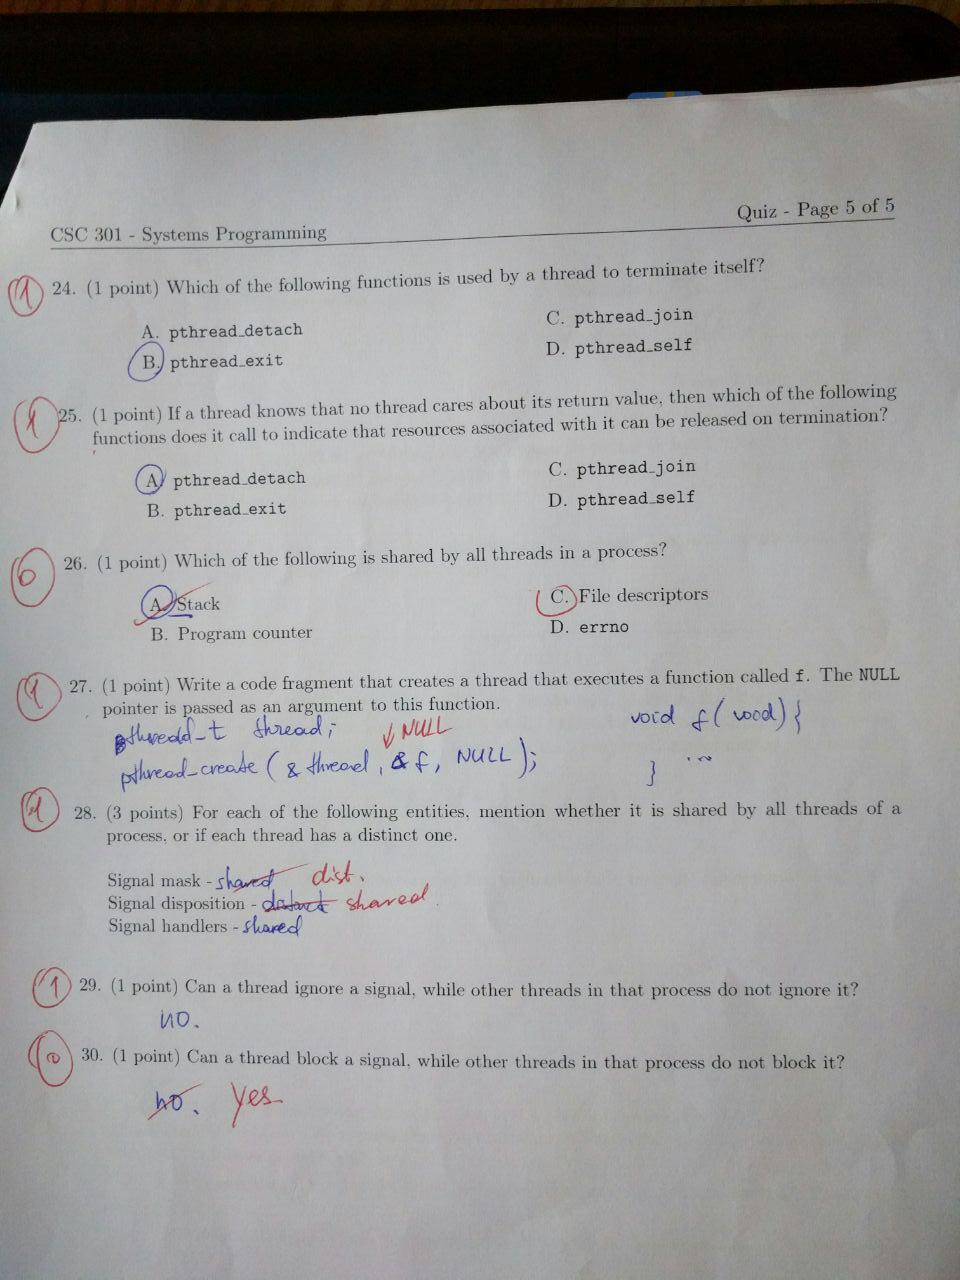 CSC 301 - Systems Programming
Quiz - Page 5 of 5
1 24. (1 point) Which of the following functions is used by a thread to terminate itself?
A. pthread_detach
C. pthread_join
B. pthread_exit
D. pthread_self
1 25. (1 point) If a thread knows that no thread cares about its return value, then which of the following
functions does it call to indicate that resources associated with it can be released on termination?
A. pthread_detach
C. pthread_join
B. pthread_exit
D. pthread_self
0 26. (1 point) Which of the following is shared by all threads in a process?
A. Stack
C. File descriptors
B. Program counter
D. errno
1 27. (1 point) Write a code fragment that creates a thread that executes a function called f. The NULL
pointer is passed as an argument to this function.
pthread_t thread; NULL
void f(void){
pthread_create (& thread, &f, NULL);
...
}
1 28. (3 points) For each of the following entities, mention whether it is shared by all threads of a
process, or if each thread has a distinct one.
Signal mask - shared dist.
Signal disposition - distinct shared
Signal handlers - shared
1 29. (1 point) Can a thread ignore a signal, while other threads in that process do not ignore it?
no.
0 30. (1 point) Can a thread block a signal, while other threads in that process do not block it?
no. Yes